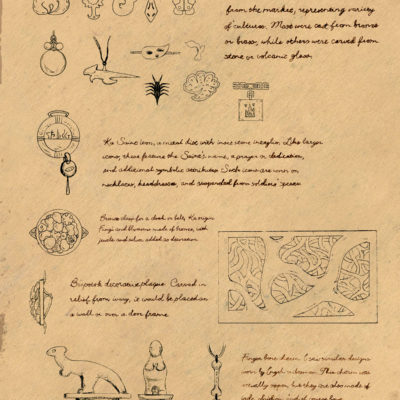 from the market, representing variety
of cultures. Most were cast from bronze
or brass, while others were carved from
stone or volcanic glass.
Ka Saint icon, a metal disc with inset stone intaglio. Like larger
icons, these feature the Saint's name, a prayer or dedication,
and additional symbolic attributes. Such icons are worn on
necklaces, headdresses, and suspended from soldiers' spears.
Bronze clasp for a cloak or belt,
Fungi and blossoms made of bronze, with
jewels and added as decoration.
decorative plaque. Carved in
relief from ivory, it would be placed on
a wall or over a door frame.
Finger bone charm. I saw similar designs
worn by This charm was
actually copper, but they are also made of
jade,